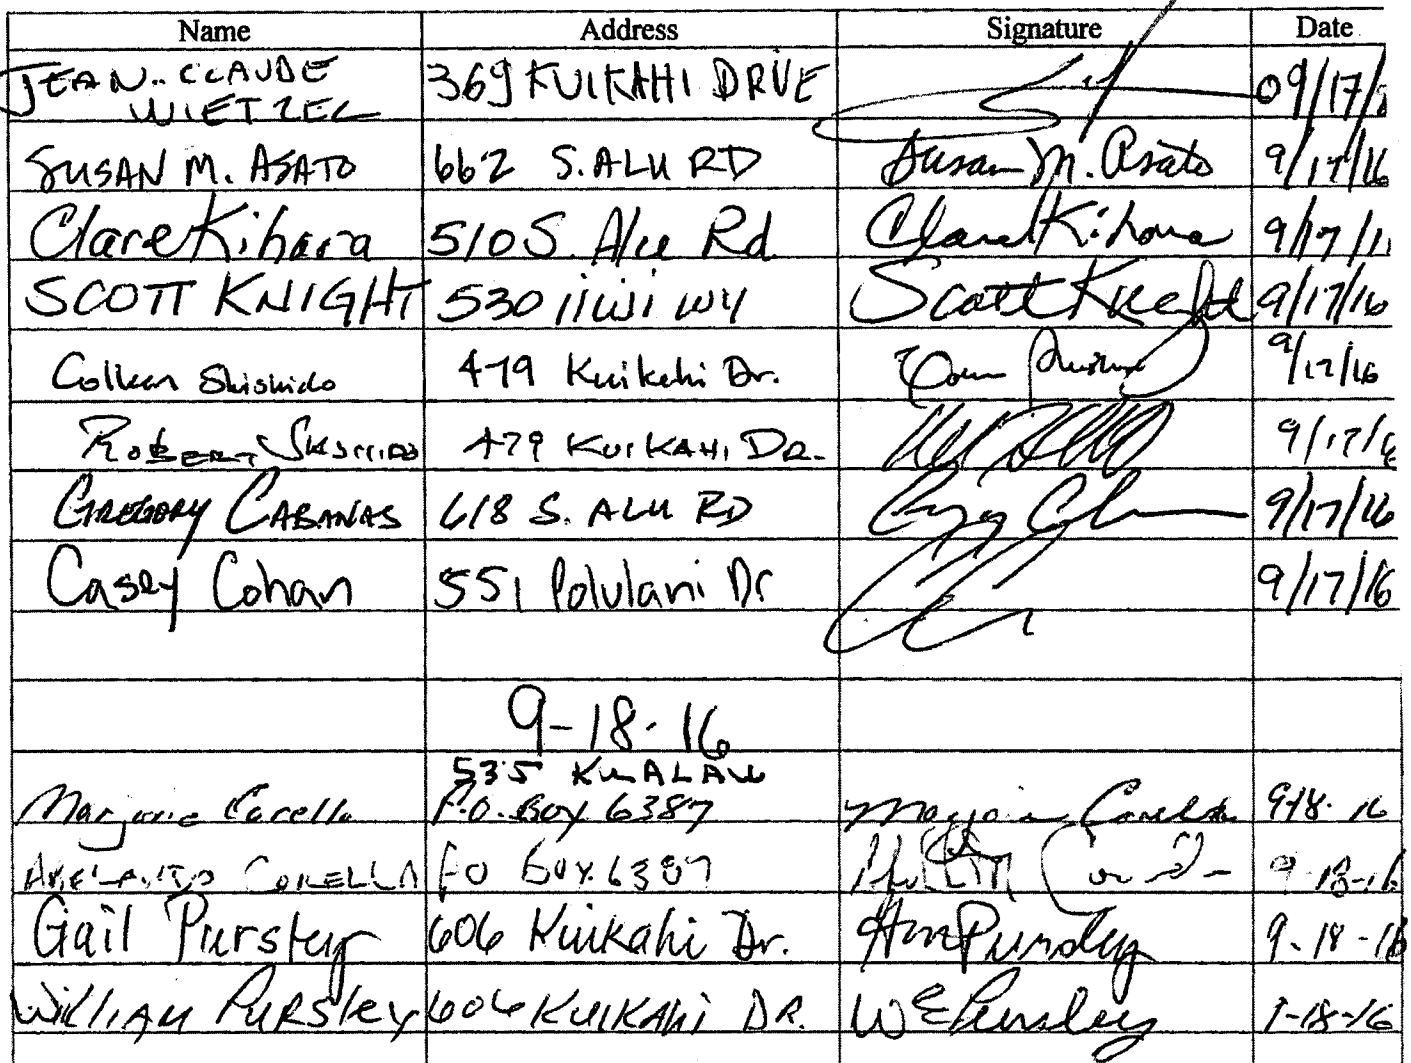 Name Address Signature Date
JEAN-CLAUDE
WIETZEL 369 KUIKAHI DRVE 09/17/
SUSAN M. ASATO 662 S. ALU RD Susan M. Asato 9/17/16
Clare Kihara 510 S. Alu Rd. Clare Kihara 9/17/1
SCOTT KNIGHT 530 iiwi WY Scott Knight 9/17/16
Colleen Shishido 479 Kuikahi Dr. 9/17/16
ROBERT SHISHIDO 479 KUIKAHI DR. 9/17/16
GREGORY CABANAS 618 S. ALU RD 9/17/16
Casey Cohan 551 Polulani Dr 9/17/16
9-18-16
535 KUALAU
Marjorie Corella P.O. Box 6387 Marjorie Corella 9-18-16
CORELLA PO Box 6387 9-18-16
Gail Pursley 606 Kuikahi Dr. Pursley 9-18-16
William PURSLEY 606 KUIKAHI DR. W E Pursley 9-18-16